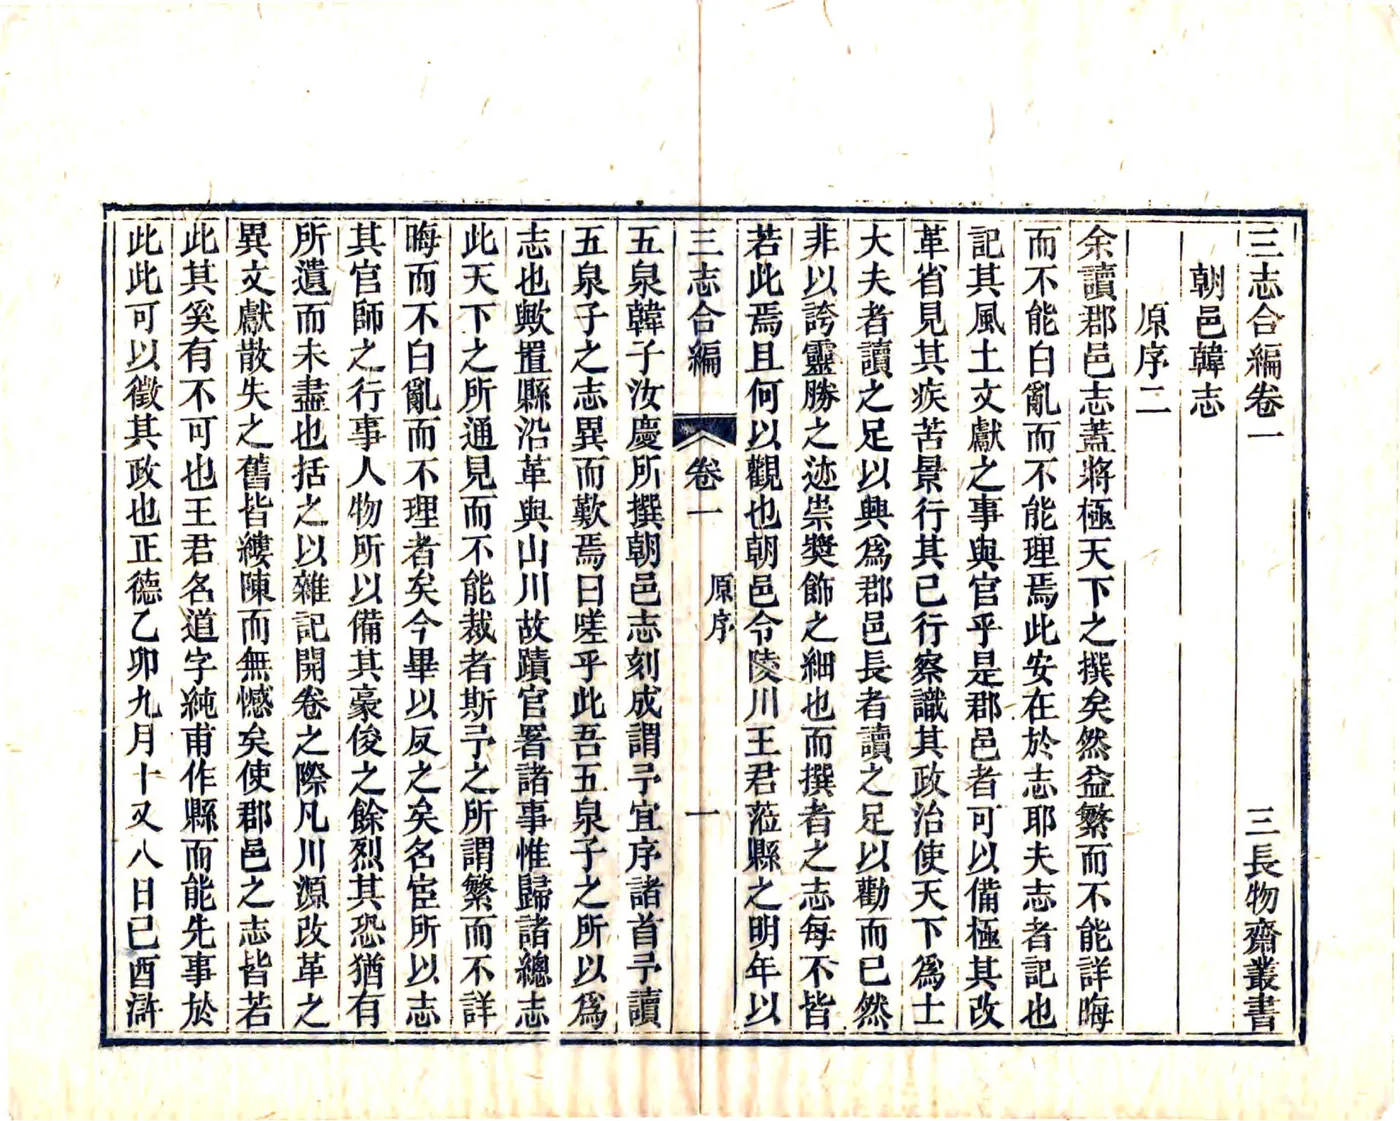 三志合編卷一　三長物齋叢書
朝邑韓志
原序二
余讀郡邑志蓋將極天下之撰矣然益繁而不能詳晦
而不能白亂而不能理焉此安在於志耶夫志者記也
記其風土文獻之事與官乎是郡邑者可以備極其改
革省見其疾苦景行其已行察識其政治使天下爲士
大夫者讀之足以興爲郡邑長者讀之足以勸而已然
非以誇靈勝之迹崇奬飾之細也而撰者之志每不皆
若此焉且何以觀也朝邑令陵川王君蒞縣之明年以
三志合編　卷一　原序　一
五泉韓子汝慶所撰朝邑志刻成謂予宜序諸首予讀
五泉子之志異而歎焉曰嗟乎此吾五泉子之所以爲
志也歟置縣沿革與山川故蹟官署諸事惟歸諸總志
此天下之所通見而不能裁者斯予之所謂繁而不詳
晦而不白亂而不理者矣今畢以反之矣名宦所以志
其官師之行事人物所以備其豪俊之餘烈其恐猶有
所遺而未盡也括之以雜記開卷之際凡川源改革之
異文獻散失之舊皆縷陳而無憾矣使郡邑之志皆若
此其奚有不可也王君名道字純甫作縣而能先事於
此此可以徵其政也正德乙卯九月十又八日已酉滸